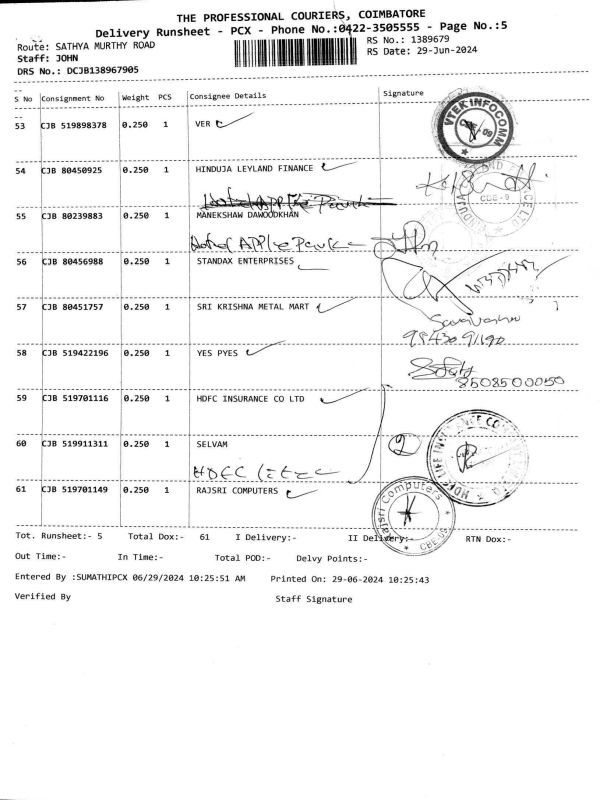 THE PROFESSIONAL COURIERS, COIMBATORE
Delivery Runsheet - PCX - Phone No.:0422-3505555 - Page No.:5
Route: SATHYA MURTHY ROAD
RS No.: 1389679
Staff: JOHN
RS Date: 29-Jun-2024
DRS No.: DCJB138967905
S No Consignment No Weight PCS Consignee Details Signature
53 CJB 519898378 0.250 1 VER
VTEK INFOCOMM
54 CJB 80450925 0.250 1 HINDUJA LEYLAND FINANCE
CBE-9
55 CJB 80239883 0.250 1 MANEKSHAW DAWOODKHAN
Hotel APPle Park
56 CJB 80456988 0.250 1 STANDAX ENTERPRISES
57 CJB 80451757 0.250 1 SRI KRISHNA METAL MART
58 CJB 519422196 0.250 1 YES PYES
8508500050
59 CJB 519701116 0.250 1 HDFC INSURANCE CO LTD
60 CJB 519911311 0.250 1 SELVAM
2
HDFC
61 CJB 519701149 0.250 1 RAJSRI COMPUTERS
Rajsri Computers
CBE-09
Tot. Runsheet:- 5 Total Dox:- 61 I Delivery:- II Delivery:- RTN Dox:-
Out Time:- In Time:- Total POD:- Delvy Points:-
Entered By :SUMATHIPCX 06/29/2024 10:25:51 AM Printed On: 29-06-2024 10:25:43
Verified By Staff Signature